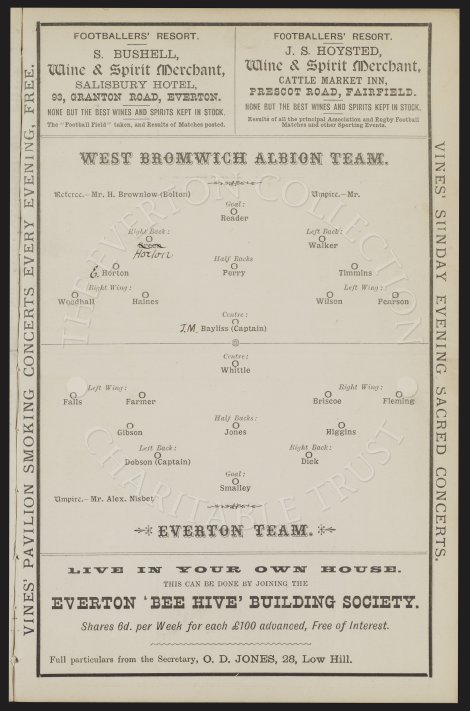 FOOTBALLERS' RESORT.
S. BUSHELL,
Wine & Spirit Merchant,
SALISBURY HOTEL,
93, GRANTON ROAD, EVERTON.
NONE BUT THE BEST WINES AND SPIRITS KEPT IN STOCK.
The "Football Field" taken, and Results of Matches posted.
FOOTBALLERS' RESORT.
J. S. HOYSTED,
Wine & Spirit Merchant,
CATTLE MARKET INN,
PRESCOT ROAD, FAIRFIELD.
NONE BUT THE BEST WINES AND SPIRITS KEPT IN STOCK.
Results of all the principal Association and Rugby Football
Matches and other Sporting Events.
VINES' PAVILION SMOKING CONCERTS EVERY EVENING, FREE.
VINES' SUNDAY EVENING SACRED CONCERTS.
WEST BROMWICH ALBION TEAM.
Referee.—Mr. H. Brownlow (Bolton) Umpire.—Mr.
Goal:
Reader
Right Back: Left Back:
Horton Walker
Half Backs
E. Horton Perry Timmins
Right Wing: Left Wing:
Woodhall Haines Wilson Pearson
Centre:
J.M. Bayliss (Captain)
Centre:
Whittle
Left Wing: Right Wing:
Falls Farmer Briscoe Fleming
Half Backs:
Gibson Jones Higgins
Left Back: Right Back:
Dobson (Captain) Dick
Goal:
Smalley
Umpire.—Mr. Alex. Nisbet
EVERTON TEAM.
LIVE IN YOUR OWN HOUSE.
THIS CAN BE DONE BY JOINING THE
EVERTON 'BEE HIVE' BUILDING SOCIETY.
Shares 6d. per Week for each £100 advanced, Free of Interest.
Full particulars from the Secretary, O. D. JONES, 28, Low Hill.
THE EVERTON COLLECTION
CHARITABLE TRUST